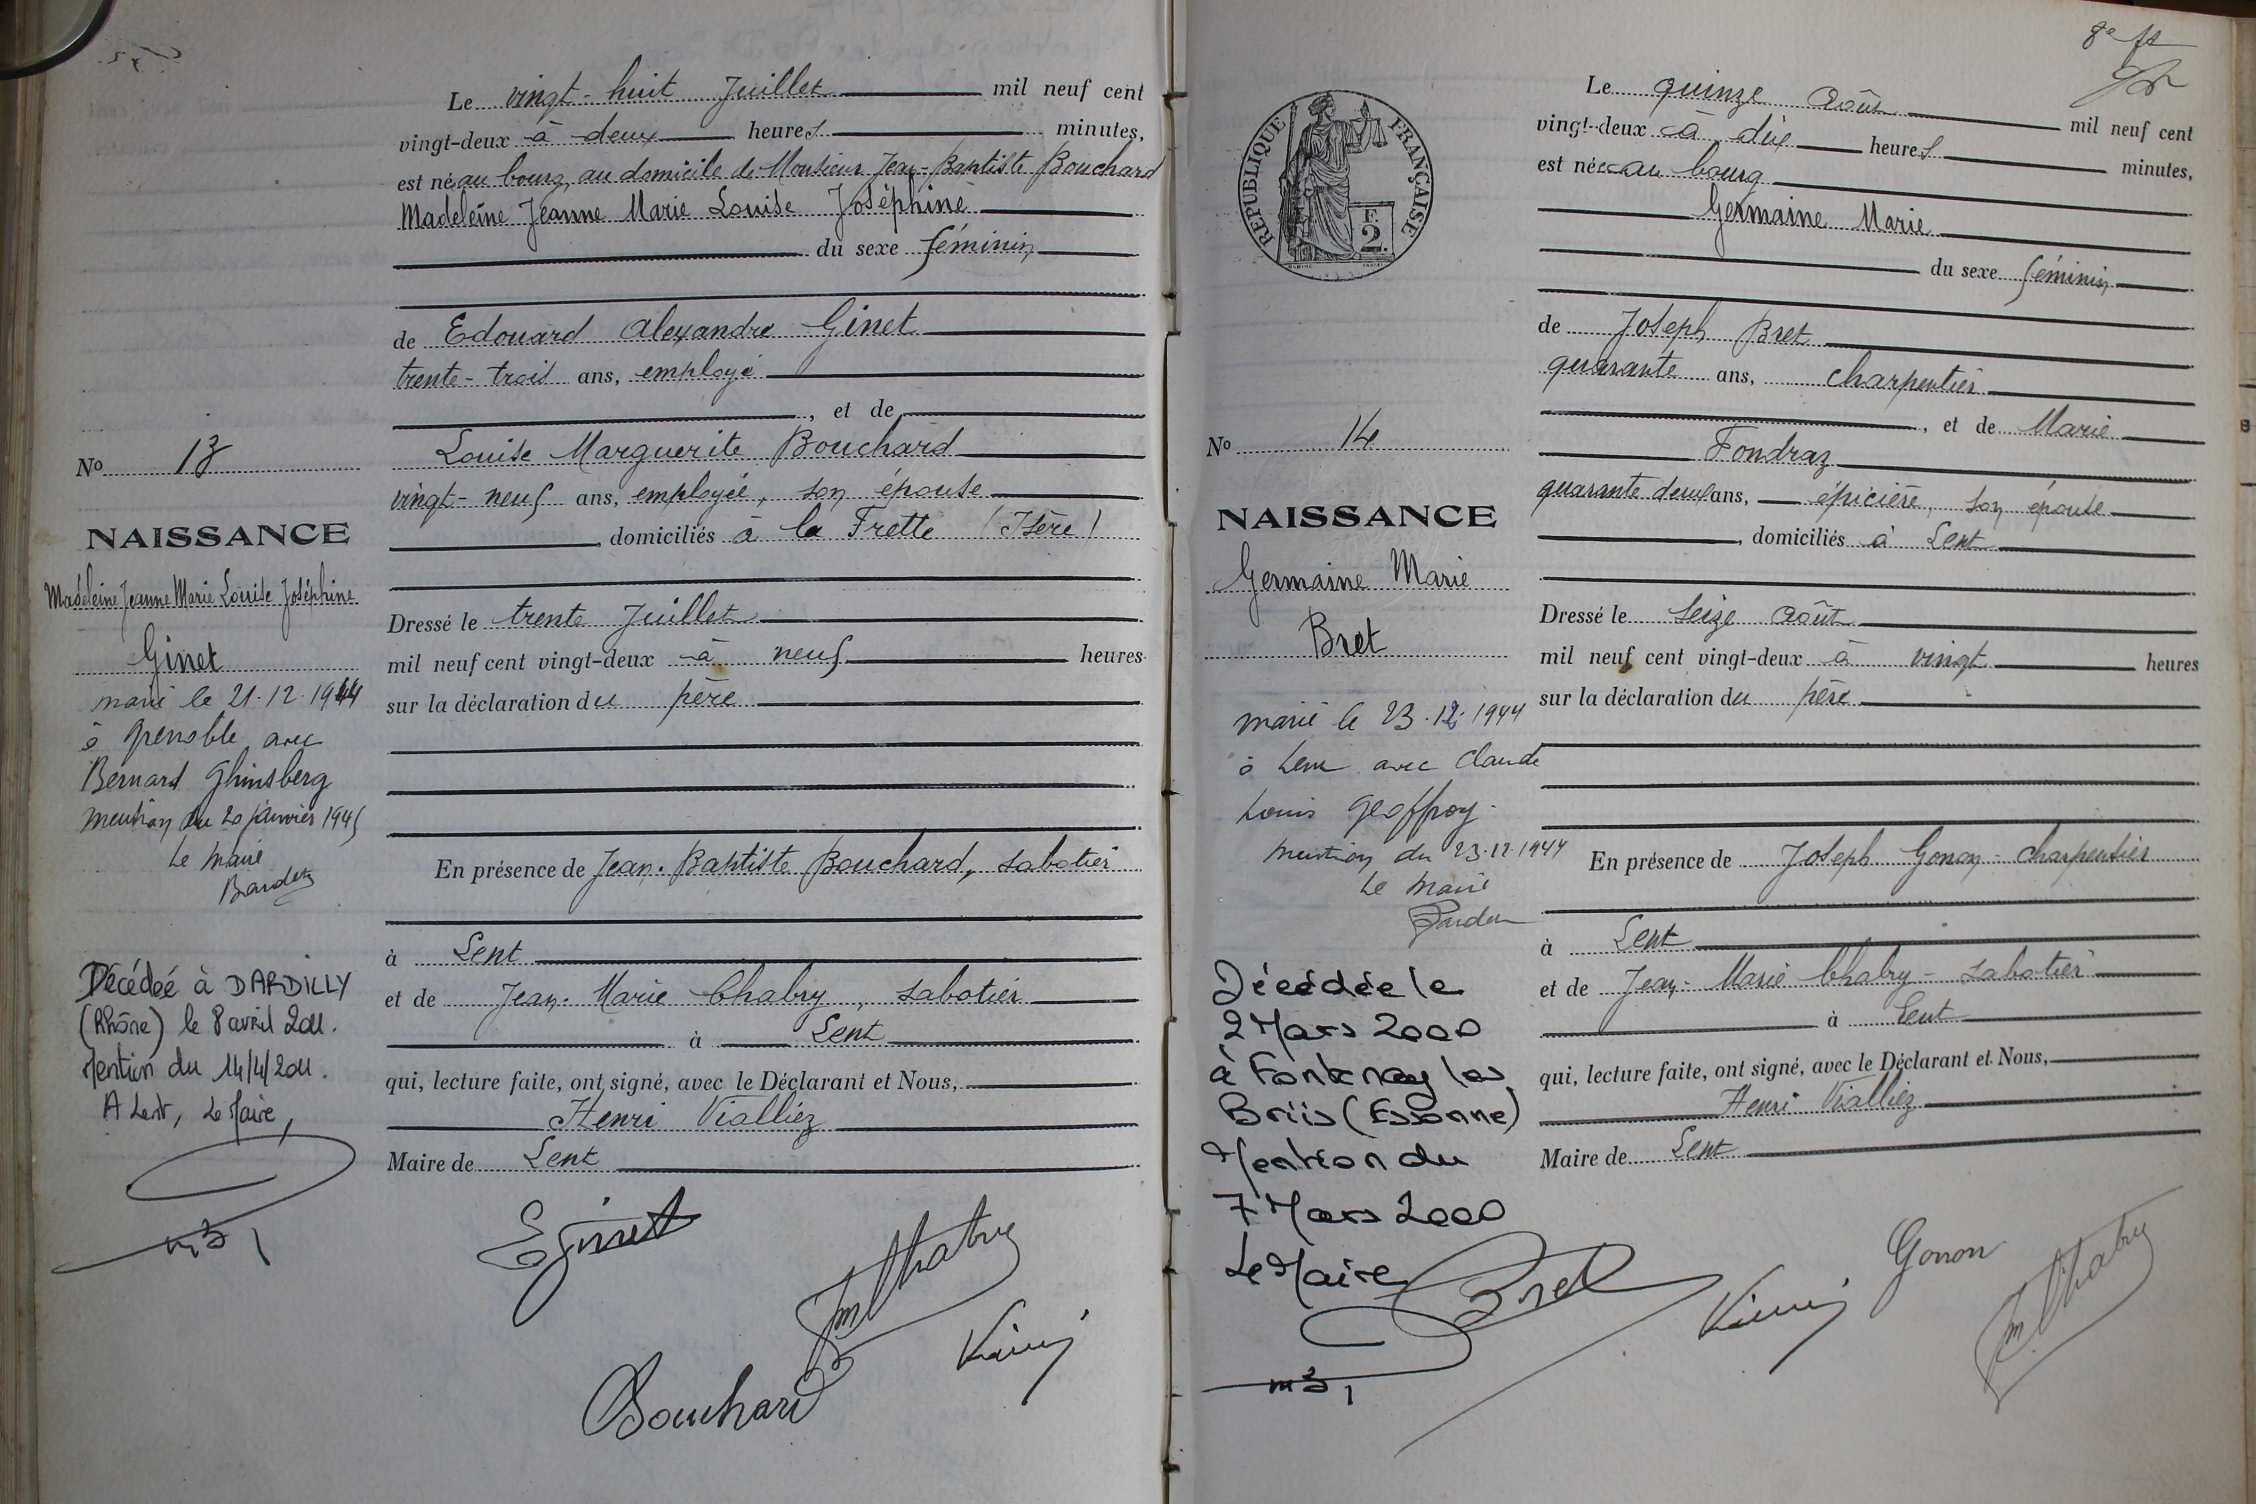 Le vingt-huit Juillet mil neuf cent
vingt-deux à deux heures minutes,
est née au bourg, au domicile de Monsieur Jean-Baptiste Bouchard
Madeleine Jeanne Marie Louise Joséphine
du sexe féminin
de Edouard Alexandre Ginet
trente-trois ans, employé
, et de
Louise Marguerite Bouchard
vingt-neuf ans, employée, son épouse
, domiciliés à la Frette (Isère)
Dressé le trente Juillet
mil neuf cent vingt-deux à neuf heures
sur la déclaration du père
En présence de Jean-Baptiste Bouchard, sabotier
à Lent
et de Jean-Marie Chabry, sabotier
à Lent
qui, lecture faite, ont signé, avec le Déclarant et Nous,
Henri Vialliez
Maire de Lent
No 13
NAISSANCE
Madeleine Jeanne Marie Louise Joséphine
Ginet
marié le 21.12.1944
à Grenoble avec
Bernard Ghinsberg
mention du 20 janvier 1945
Le Maire
Décédée à DARDILLY
(Rhône) le 8 avril 2011.
Mention du 14/4/2011.
A Lent, Le Maire,
EGinet
JM Chabry
Bouchard
8e ft
RÉPUBLIQUE FRANÇAISE
F.
2.
Le quinze Août mil neuf cent
vingt-deux à dix heures minutes,
est née au bourg
Germaine Marie
du sexe féminin
de Joseph Bret
quarante ans, charpentier
, et de Marie
Fondraz
quarante deux ans, épicière, son épouse
, domiciliés à Lent
Dressé le seize Août
mil neuf cent vingt-deux à vingt heures
sur la déclaration du père
En présence de Joseph Gonon - charpentier
à Lent
et de Jean-Marie Chabry - sabotier
à Lent
qui, lecture faite, ont signé, avec le Déclarant et Nous,
Henri Vialliez
Maire de Lent
No 14
NAISSANCE
Germaine Marie
Bret
marié le 23.12.1944
à Lent avec Claude
Louis Geoffroy.
mention du 23.12.1944
Le Maire
Décédée le
2 Mars 2000
à Fontenay les
Briis (Essonne)
Mention du
7 Mars 2000
Le Maire
Bret
Gonon
JM Chabry